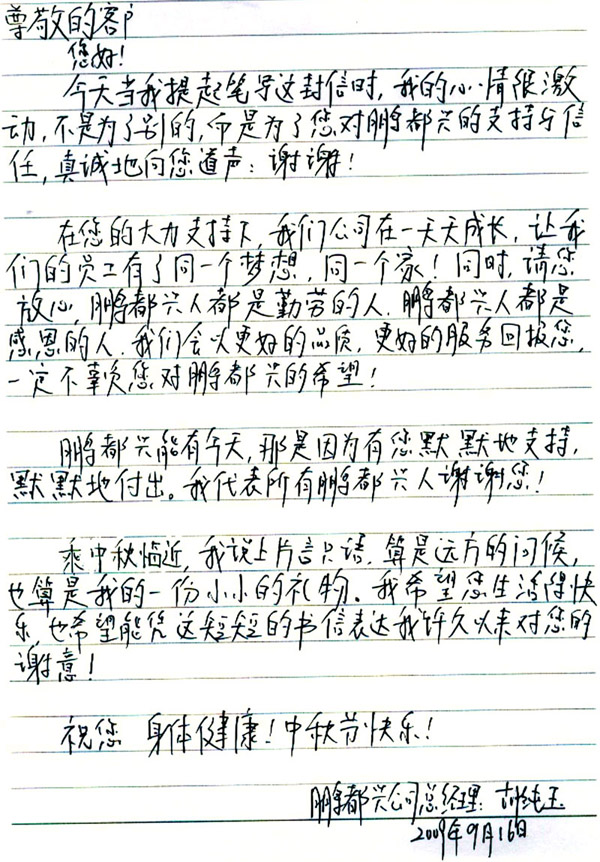 尊敬的客户
您好!
今天当我提起笔写这封信时,我的心情很激
动,不是为了别的,而是为了您对鹏都兴的支持与信
任,真诚地向您道声:谢谢!
在您的大力支持下,我们公司在一天天成长,让我
们的员工有了同一个梦想,同一个家!同时,请您
放心,鹏都兴人都是勤劳的人.鹏都兴人都是
感恩的人.我们会以更好的品质,更好的服务回报您,
一定不辜负您对鹏都兴的希望!
鹏都兴能有今天,那是因为有您默默地支持,
默默地付出。我代表所有鹏都兴人谢谢您!
乘中秋临近,我说上片言只语,算是远方的问候,
也算是我的一份小小的礼物。我希望您生活得快
乐,也希望能凭这短短的书信表达我许久以来对您的
谢意!
祝您 身体健康!中秋节快乐!
鹏都兴公司总经理:胡纯玉
2009年9月16日